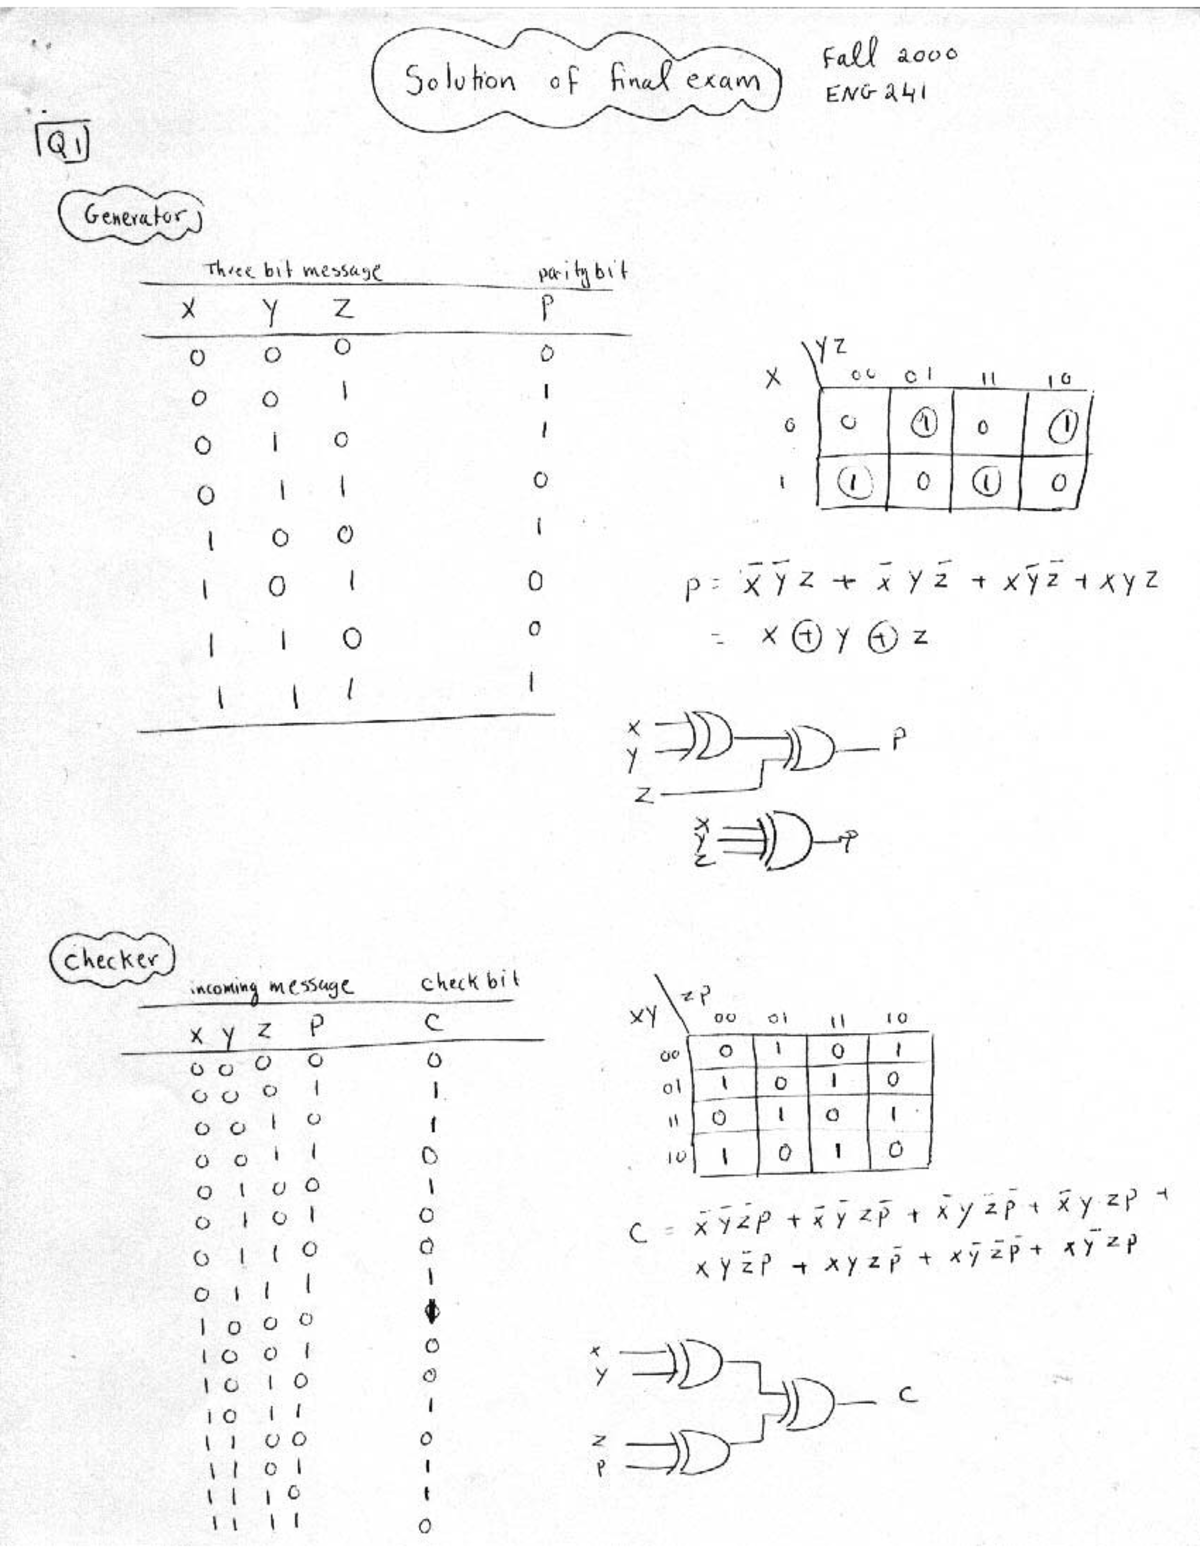 Solution of final exam
Fall 2000
ENG 241
Q1
Generator
Three bit message parity bit
X Y Z P
0 0 0 0
0 0 1 1
0 1 0 1
0 1 1 0
1 0 0 1
1 0 1 0
1 1 0 0
1 1 1 1
X \ YZ
00 01 11 10
0 0 1 0 1
1 1 0 1 0
P = x̄ ȳ z + x̄ y z̄ + x ȳ z̄ + x y z
= x ⊕ y ⊕ z
X
Y
Z
P
X
Y
Z
P
Checker
incoming message check bit
X Y Z P C
0 0 0 0 0
0 0 0 1 1
0 0 1 0 1
0 0 1 1 0
0 1 0 0 1
0 1 0 1 0
0 1 1 0 0
0 1 1 1 1
1 0 0 0
1 0 0 1 0
1 0 1 0 0
1 0 1 1 1
1 1 0 0 0
1 1 0 1 1
1 1 1 0 1
1 1 1 1 0
XY \ ZP
00 01 11 10
00 0 1 0 1
01 1 0 1 0
11 0 1 0 1
10 1 0 1 0
C = x̄ ȳ z̄ p + x̄ ȳ z p̄ + x̄ y z̄ p̄ + x̄ y z p +
x y z̄ p + x y z p̄ + x ȳ z̄ p̄ + x ȳ z p
x
y
z
p
C